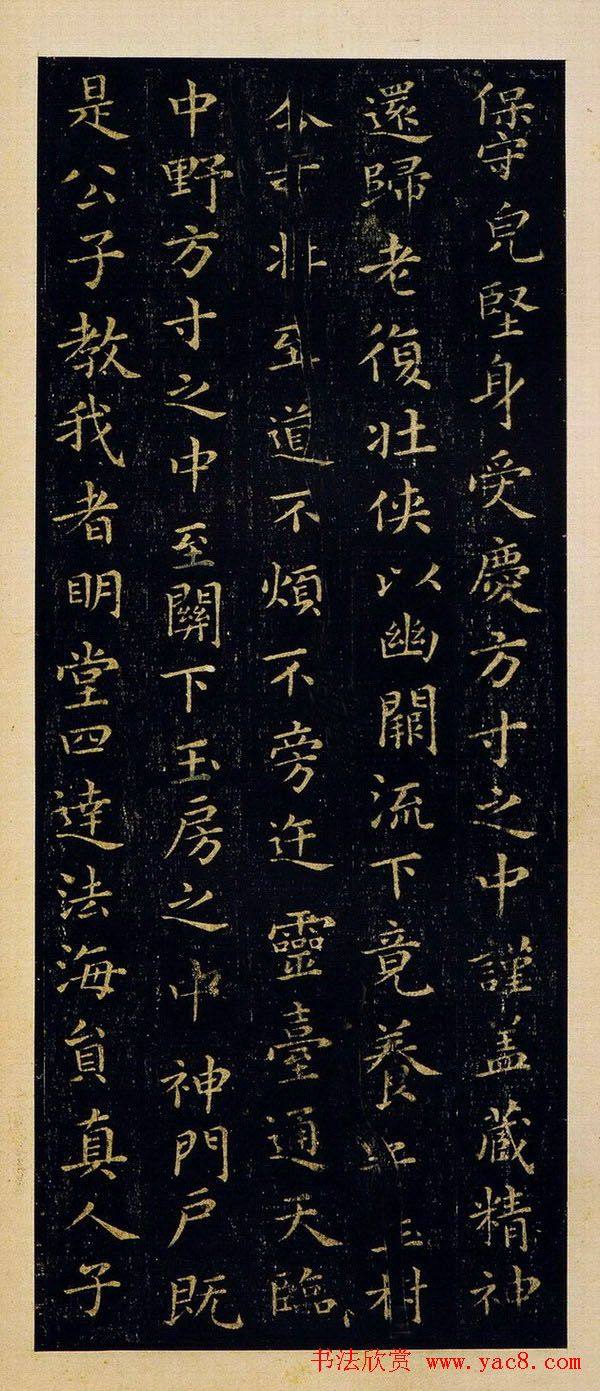 保守皃堅身受慶方寸之中謹盖藏精神
還歸老復壮侠以幽闕流下竟養 玉樹
不煩不旁迕靈臺通天臨
中野方寸之中至關下玉房之中神門戶既
是公子教我者明堂四達法海貟真人子
书法欣赏 www.yac8.com